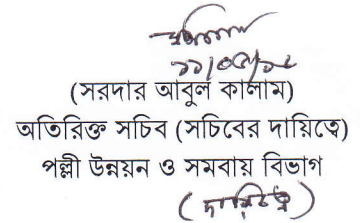 (সরদার আবুল কালাম)
অতিরিক্ত সচিব (সচিবের দায়িত্বে)
পল্লী উন্নয়ন ও সমবায় বিভাগ